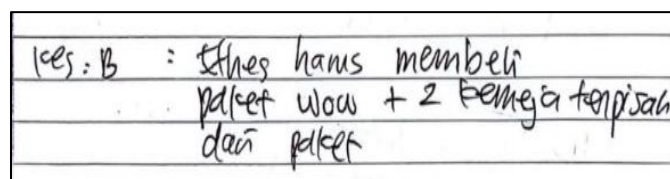 Kes : B : Ethes harus membeli
paket wow + 2 kemeja terpisah
dari paket